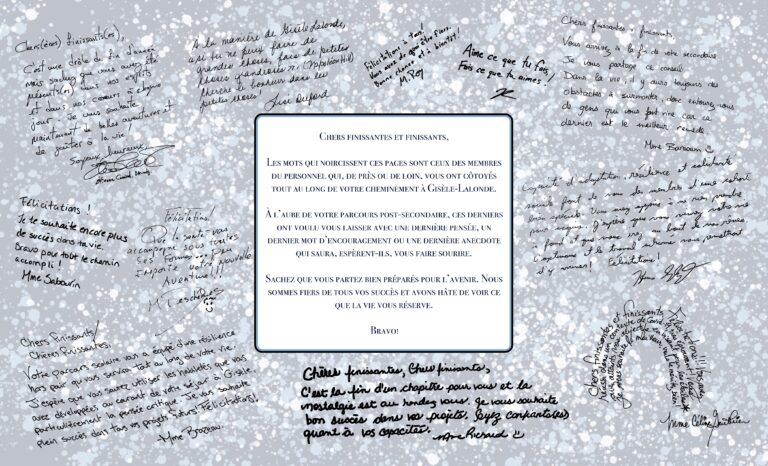 Cher(ères) finissant(es),
C'est une drôle de fin d'année
mais sachez que vous avez été
présent(es) dans nos esprits
et dans nos cœurs à chaque
jour. Je vous souhaite
maintenant de belles aventures et
de goûter à la vie!
Soyeux heureux
À la manière de Gisèle Lalonde,
« si tu ne peux faire de
grandes choses, fais de petites
choses grandioses ». (Napoléon Hill)
le bonheur dans les
petites choses!
Félicitations à tous!
Vous avez de quoi être fiers.
Bonne chance et à bientôt!
M. Roy
Aime ce que tu fais,
Fais ce que tu aimes!
Chers finissantes, finissants,
Vous arrivez à la fin de votre secondaire.
Je vous partage ce conseil:
Dans la vie, il y aura toujours des
obstacles à surmonter, donc entourez-vous
de gens qui vous font rire car ce
dernier est le meilleur remède
Chers finissantes et finissants,
Les mots qui noircissent ces pages sont ceux des membres
du personnel qui, de près ou de loin, vous ont côtoyés
tout au long de votre cheminement à Gisèle-Lalonde.
À l'aube de votre parcours post-secondaire, ces derniers
ont voulu vous laisser avec une dernière pensée, un
dernier mot d'encouragement ou une dernière anecdote
qui saura, espèrent-ils, vous faire sourire.
Sachez que vous partez bien préparés pour l'avenir. Nous
sommes fiers de tous vos succès et avons hâte de voir ce
que la vie vous réserve.
Bravo!
Félicitations!
Je te souhaite encore plus
de succès dans ta vie.
Bravo pour tout le chemin
accompli!
Mme Sabourin
Félicitations!
Que la santé vous
accompagne sous toutes
ses formes... peu
importe votre nouvelle
M. Deschênes
Capacité d'adaptation, résilience et solidarité
font de vous des membres d'une cohorte
bien spéciale. Vous avez appris à ne rien prendre
pour acquis. J'espère que vous vivrez votre vie
à fond et que vous irez au bout de vos rêves.
L'optimisme et le travail vous permettront
d'y arriver! Félicitations!
Chers finissants/
Chères finissantes,
Votre parcours scolaire vous a équipé d'une résilience
hors pair qui vous servira tout au long de votre vie.
J'espère que vous saurez utiliser les habiletés que vous
avez développées au courant de votre séjour à Gisèle,
particulièrement la pensée critique. Je vous souhaite
plein succès dans tous vos projets futurs! Félicitations!
Mme Brazeau
Chères finissantes, Chers finissants,
C'est la fin d'un chapitre pour vous et la
nostalgie est au rendez-vous. Je vous souhaite
bon succès dans vos projets. Soyez confiant(e)s
quant à vos capacités.
Mme Richard
Chers finissantes et finissants
Mme Céline Gauthier